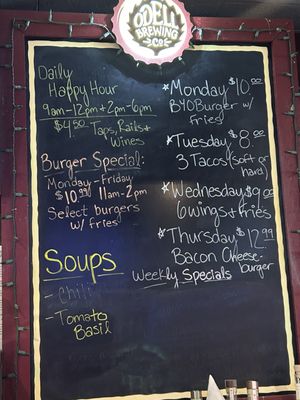 ODELL
BREWING
CO
Daily
Happy Hour
9am-12pm + 2pm-6pm
$4.50 Taps, Rails +
Wines
Burger Special:
Monday-Friday
$10.99 11am-2pm
Select burgers
w/ fries
Soups
- Chili
- Tomato
Basil
*Monday $10.00
BYOBurger w/
Fries
*Tuesday $8.00
3 Tacos (soft or
hard)
*Wednesday $9.00
6 wings + fries
*Thursday $12.99
Bacon Cheese-
burger
Weekly Specials